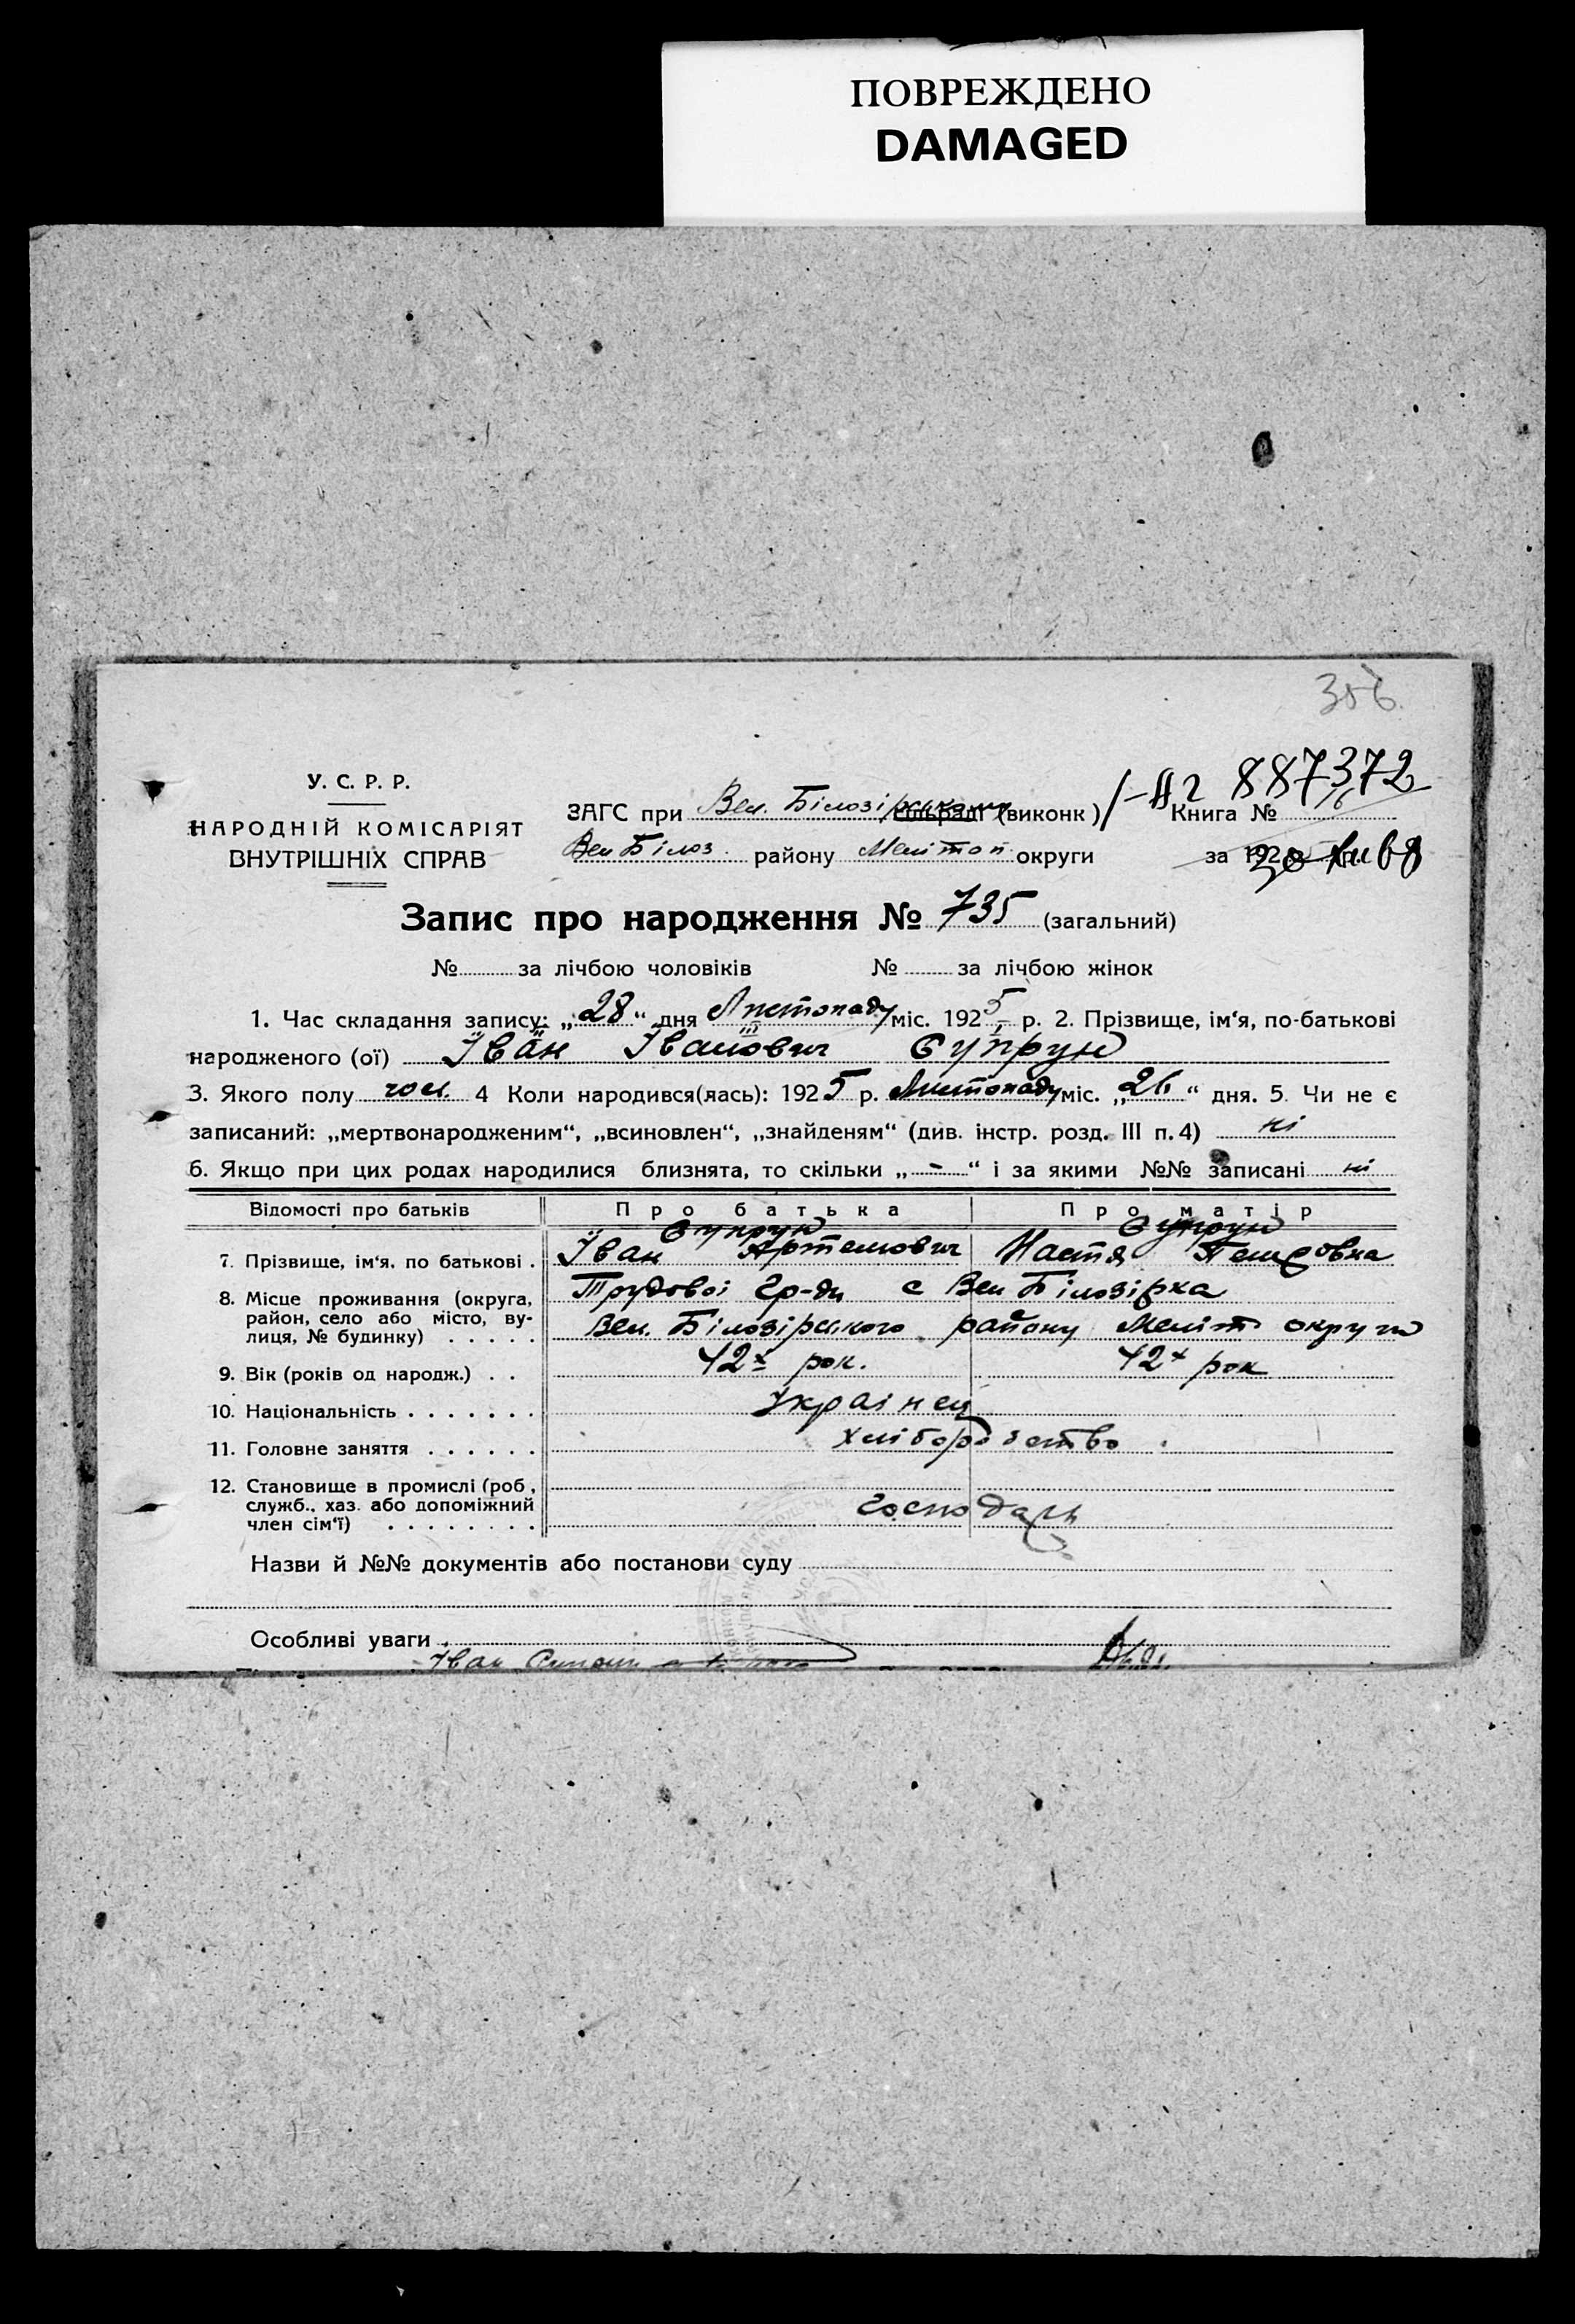 ПОВРЕЖДЕНО
DAMAGED
306.
У. С. Р. Р.
НАРОДНІЙ КОМІСАРІЯТ
ВНУТРІШНІХ СПРАВ
ЗАГС при Вел. Білозірським сільраді (виконк)
І-АГ 887372
Книга № 16
Вел Білоз. району МеліTоп округи за 192
Запис про народження № 735 (загальний)
№ за лічбою чоловіків № за лічбою жінок
1. Час складання запису: „28“ дня Листопаду міс. 1925 р. 2. Прізвище, ім‘я, по-батькові
народженого (ої) Іван Іванович Супрун
3. Якого полу чол. 4 Коли народився(лась): 1925 р. Листопаду міс. „26“ дня. 5. Чи не є
записаний: „мертвонародженим“, „всиновлен“, „знайденям“ (див. інстр. розд. III п. 4) ні
6. Якщо при цих родах народилися близнята, то скільки „-“ і за якими №№ записані ні
Відомості про батьків Про батька Про матір
Супрун Супрун
7. Прізвище, ім‘я, по батькові . Іван Артемович Настя Петровна
8. Місце проживання (округа, район, село або місто, вулиця, № будинку) . . . . . Трудової гр-ди с Вел Білозірка
Вел. Білозірського району Меліт округи
9. Вік (років од народж.) . . 42х рок. 42х рок
10. Національність . . . . . . . Українец
11. Головне заняття . . . . . . хліборобство .
12. Становище в промислі (роб, служб., хаз. або допоміжний член сім‘ї) . . . . . . . . Господарь
Назви й №№ документів або постанови суду
Особливі уваги
Іван